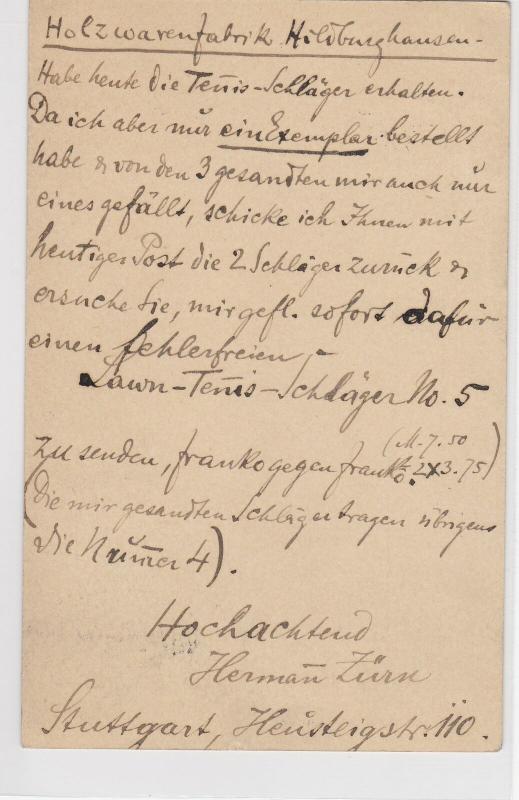 Holzwarenfabrik Hildburghausen-
Habe heute die Teñis-Schläger erhalten.
Da ich aber nur ein Exemplar bestellt
habe & von den 3 gesandten mir auch nur
eines gefällt, schicke ich Ihnen mit
heutiger Post die 2 Schläger zurück &
ersuche Sie, mir gefl. sofort dafür
einen fehlerfreien -
Lawn-Teñis-Schläger No. 5
(M. 7.50
zu senden, franko gegen franko. 2x3.75)
(Die mir gesandten Schläger tragen übrigens
die Num̄er 4).
Hochachtend
Herman̄ Zürn
Stuttgart, Heusteigstr. 110.